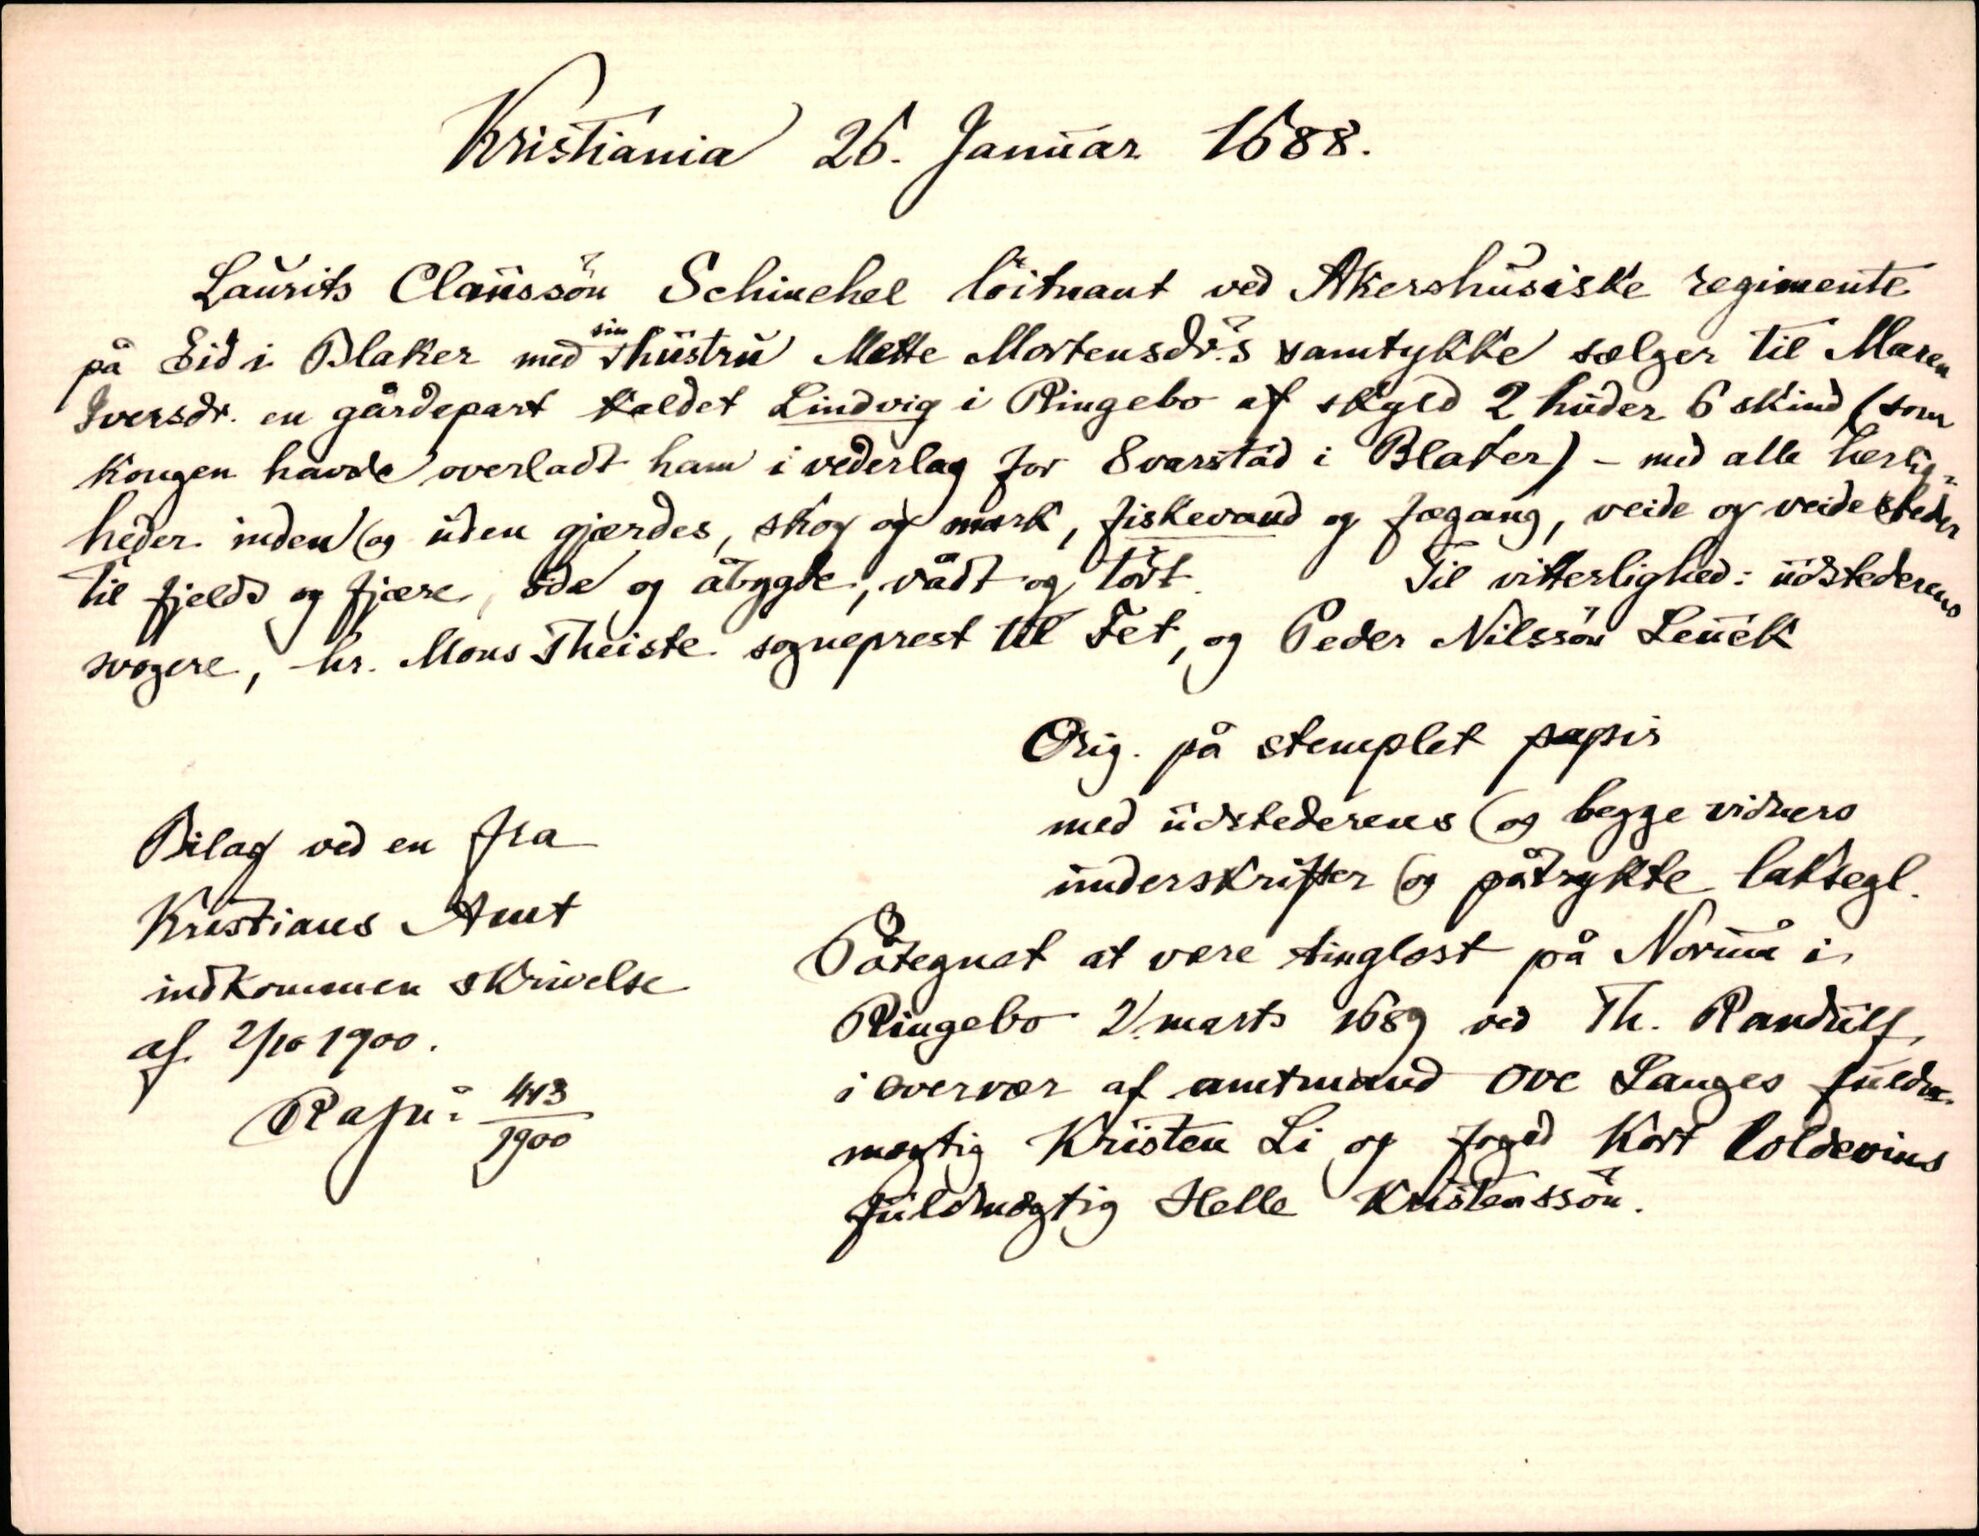 Kristiania 26. Januar 1688.
Laurits Claussön Schinchel löitnant ved Akershusiske regimente
på Eid i Blaker med sin hustru Mette Mortensdr.s samtykke sælger til Maren
Iversdr. en gårdepart kaldet Lindvig i Ringebo af skyld 2 huder 6 skind (som
kongen havde overladt ham i vederlag for Svarstad i Blaker) – med alle herlig-
heder inden og uden gjærdes, skog og mark, fiskevand og fægang, veide og veidesteder
til fjelds og fjære, öde og åbygde, vådt og tört. Til vitterlighed: udstederens
svogere, hr. Mons Theiste sogneprest til Fet, og Peder Nilssön Leuck
Orig. på stemplet papir
med udstederens og begge vidners
underskrifter og påtrykte laksegl.
Påtegnet at være tinglæst på Norma i
Ringebo 2/ marts 1689 ved Th. Randulf,
i overvær af amtmand Ove Langes fuldm-
mægtig Kristen Li og foged Kort Coldevins
fuldmægtig Helle Kristenssön.
Bilag ved en fra
Kristians Amt
indkommen skrivelse
af 2/10 1900.
Rajn: 443/1900